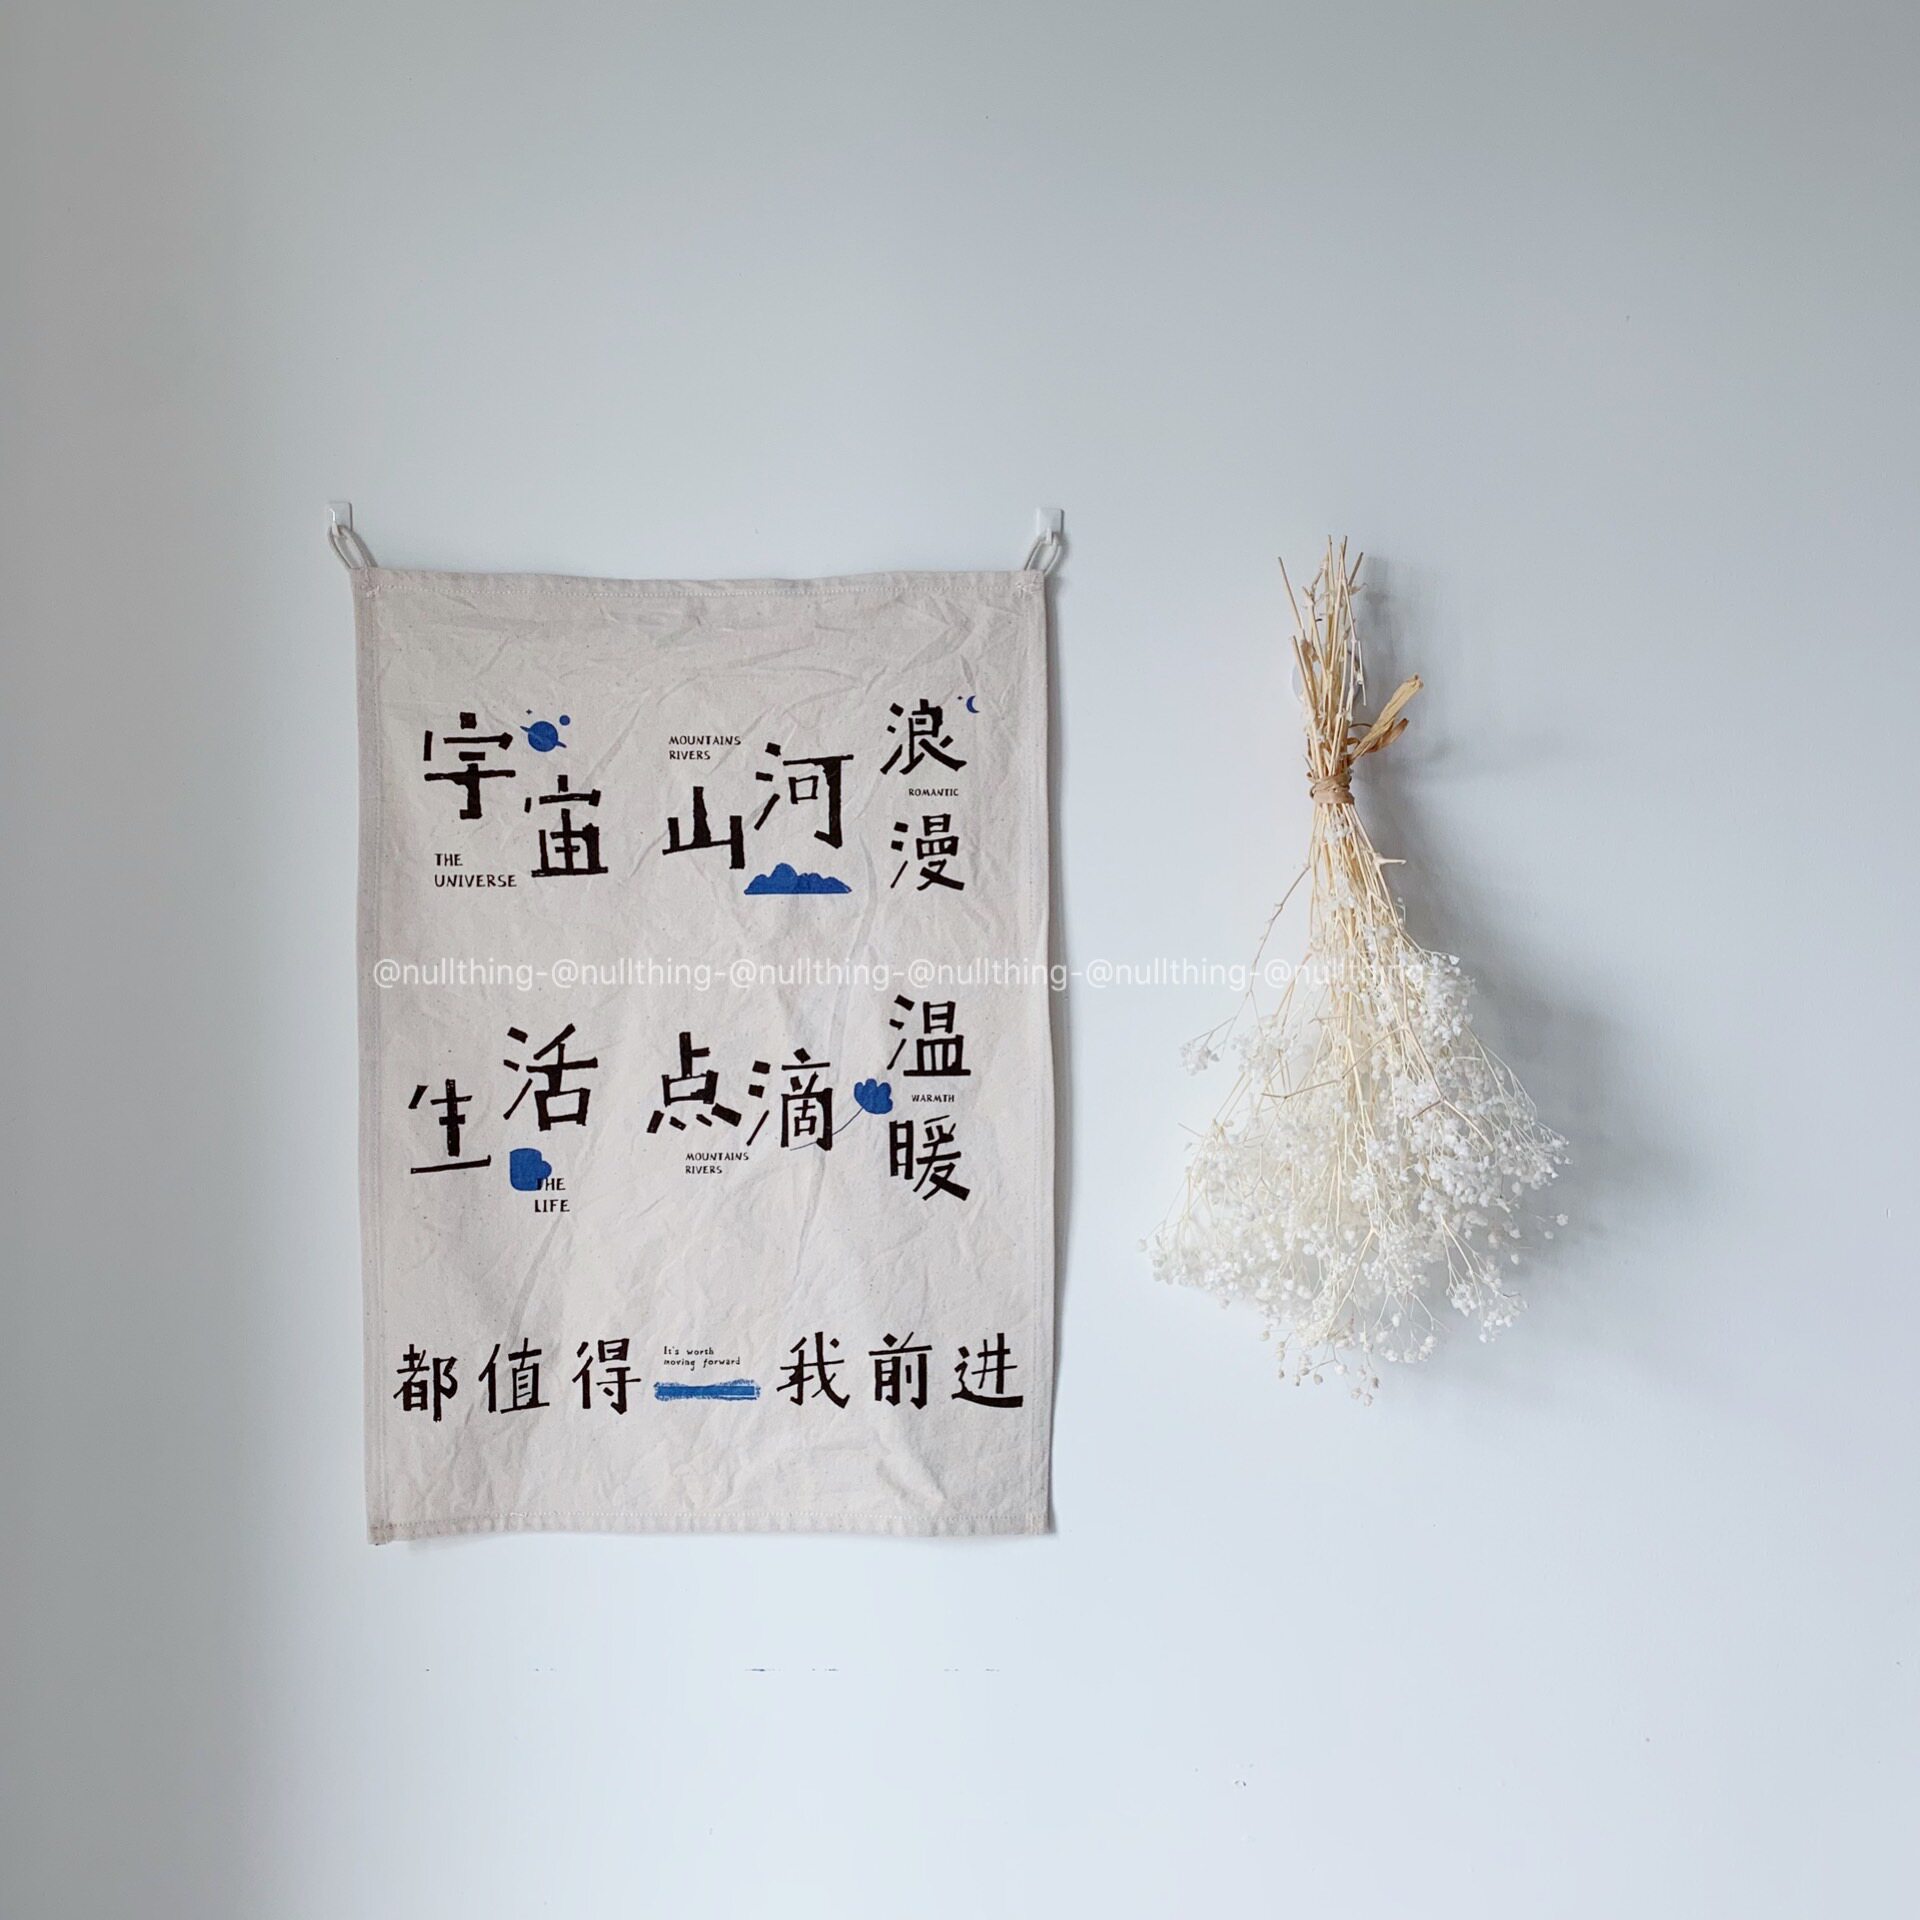 宇宙
THE
UNIVERSE
MOUNTAINS
RIVERS
山河
浪
ROMANTIC
漫
@nullthing-@nullthing-@nullthing-@nullthing-@nullthing-@nullthing-
生活
THE
LIFE
点滴
MOUNTAINS
RIVERS
温
WARMTH
暖
都值得
It's worth
moving forward
我前进